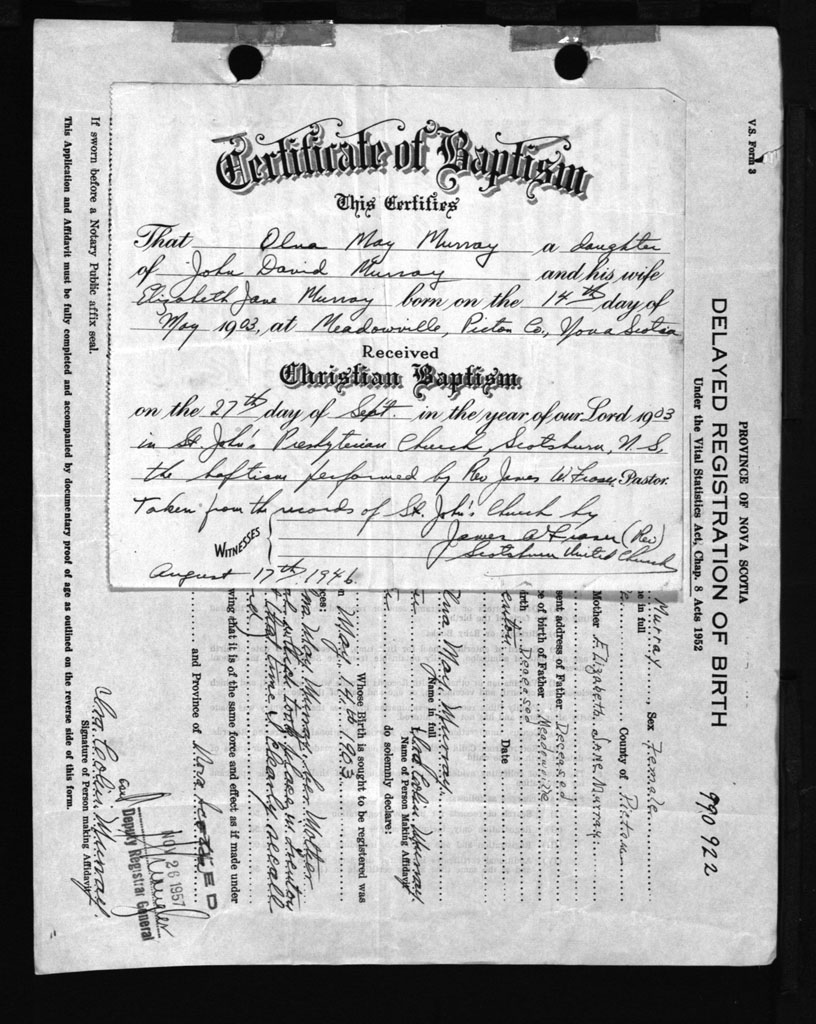 Certificate of Baptism
This Certifies
That Olna May Murray a daughter
of John David Murray and his wife
Elizabeth Jane Murray born on the 14th day of
May 1903, at Meadowville, Pictou Co., Nova Scotia
Received
Christian Baptism
on the 27th day of Sept. in the year of our Lord 1903
in St. John's Presbyterian Church, Scotsburn, N.S,
the baptism performed by Rev James W. Fraser Pastor.
Taken from the records of St. John's Church by
WITNESSES
James A Fraser (Rev)
Scotsburn United Church
August 17th, 1946
V.S. Form 3
PROVINCE OF NOVA SCOTIA
DELAYED REGISTRATION OF BIRTH
Under the Vital Statistics Act, Chap. 8 Acts 1952
990 922
Murray, Sex Female
e in full
County of Pictou
Mother Elizabeth Jane Murray
sent address of Father Deceased
e of birth of Father Meadowville
irth Deceased
enton Date
lna May Murray
Name in full
Name of Person Making Affidavit
do solemnly declare:
Whose Birth is sought to be registered was
n May 14th 1903
ces:
May Murray, her Mother
took place in Trenton
that time I clearly recall
wing that it is of the same force and effect as if made under
and Province of Nova
Murray
Signature of Person making Affidavit
NOV 26 1957
Deputy Registrar General
If sworn before a Notary Public affix seal.
This Application and Affidavit must be fully completed and accompanied by documentary proof of age as outlined on the reverse side of this form.